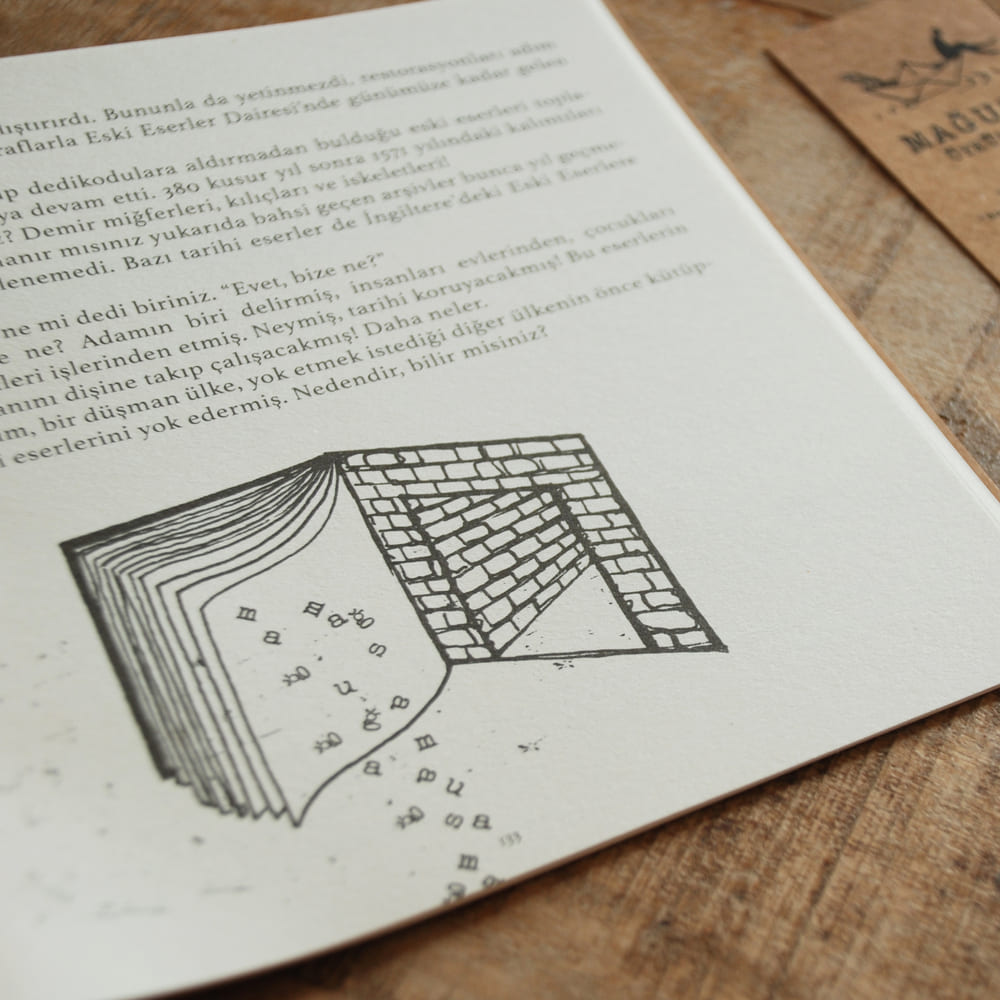 lıştırırdı. Bununla da yetinmezdi, restorasyonları adım
raflarla Eski Eserler Dairesi'nde günümüze kadar gelen
ıp dedikodulara aldırmadan bulduğu eski eserleri topla-
ya devam etti. 380 kusur yıl sonra 1571 yılındaki kalıntıları
z? Demir miğferleri, kılıçları ve iskeletleri!
nanır mısınız yukarıda bahsi geçen arşivler bunca yıl geçme-
lenemedi. Bazı tarihi eserler de İngiltere'deki Eski Eserlere
ne mi dedi biriniz. "Evet, bize ne?"
e ne? Adamın biri delirmiş, insanları evlerinden, çocukları
lleri işlerinden etmiş. Neymiş, tarihi koruyacakmış! Bu eserlerin
anını dişine takıp çalışacakmış! Daha neler.
ım, bir düşman ülke, yok etmek istediği diğer ülkenin önce kütüp-
i eserlerini yok edermiş. Nedendir, bilir misiniz?
m m a ğ
a s
ğ u
ğ a
a m
a u
ğ s a
m
133
MAĞU